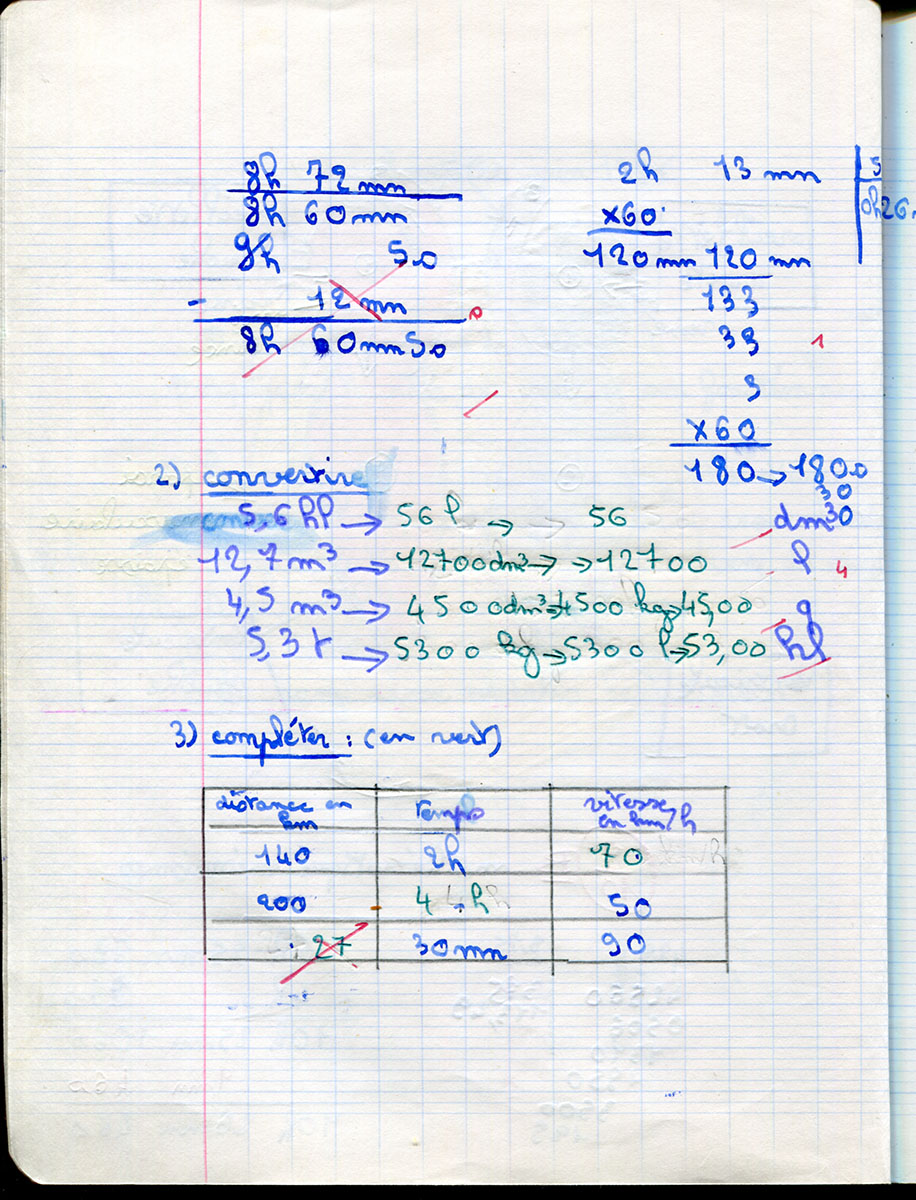 8h 72 mn
8h 60 mn
9h 50
- 12 mn
8h 60 mn 50
2h 13 mn 5
×60 0h26
120 mn 120 mn
133
33 1
3
×60
180 → 1800
30
30
2) convertire
5,6 hl → 56 l → 56 dm³
12,7 m³ → 12700 dm³ → → 12700 l 4
4,5 m³ → 4500 dm³ → 4500 kg → 45,00 q
5,3 t → 5300 kg → 5300 l → 53,00 hl
3) compléter : (en vert)
distance en km temps vitesse en km/h
140 2h 70
200 4 h 50
27 30 mn 90